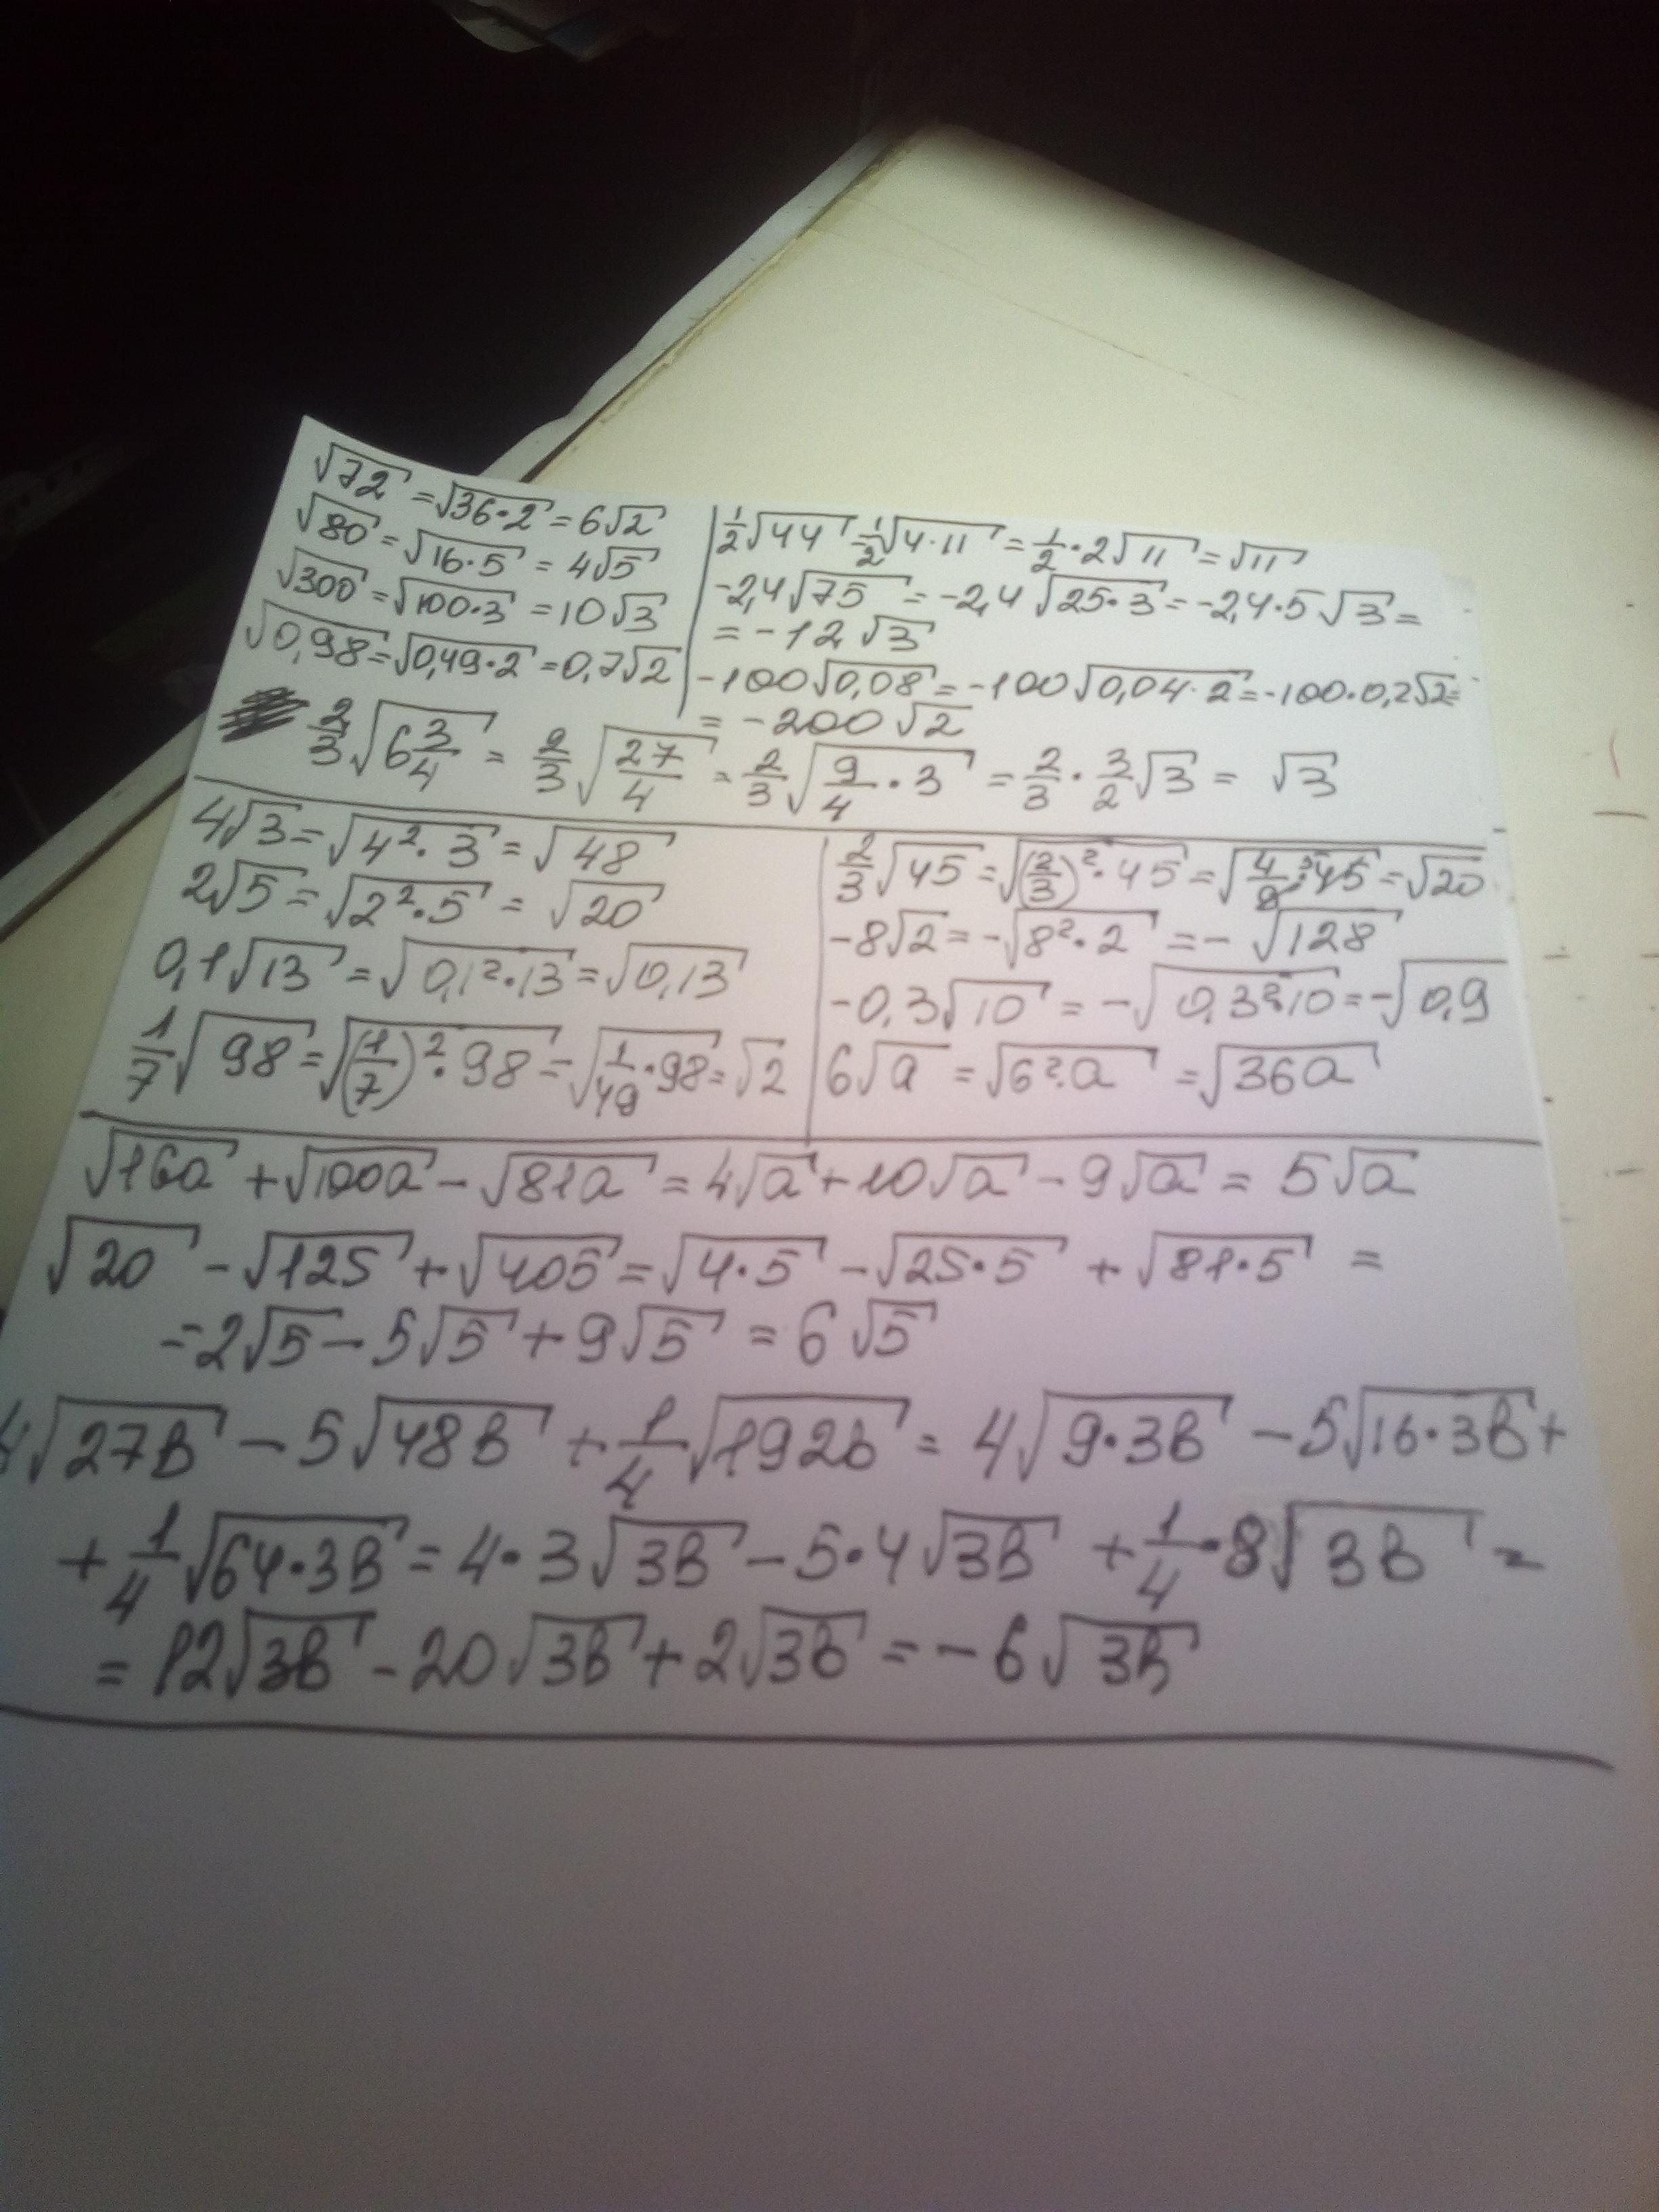 √72 = √36·2 = 6√2
√80 = √16·5 = 4√5
√300 = √100·3 = 10√3
√0,98 = √0,49·2 = 0,7√2
1/2√44 = 1/2√4·11 = 1/2·2√11 = √11
-2,4√75 = -2,4√25·3 = -2,4·5√3 =
= -12√3
-100√0,08 = -100√0,04·2 = -100·0,2√2 =
= -200√2
2/3√6 3/4 = 2/3√27/4 = 2/3√9/4·3 = 2/3·3/2√3 = √3
4√3 = √4²·3 = √48
2√5 = √2²·5 = √20
0,1√13 = √0,1²·13 = √0,13
1/7√98 = √(1/7)²·98 = √1/49·98 = √2
2/3√45 = √(2/3)²·45 = √4/9·45 = √20
-8√2 = -√8²·2 = -√128
-0,3√10 = -√0,3²·10 = -√0,9
6√a = √6²·a = √36a
√16a + √100a - √81a = 4√a + 10√a - 9√a = 5√a
√20 - √125 + √405 = √4·5 - √25·5 + √81·5 =
= 2√5 - 5√5 + 9√5 = 6√5
4√27в - 5√48в + 1/4√192в = 4√9·3в - 5√16·3в +
+ 1/4√64·3в = 4·3√3в - 5·4√3в + 1/4·8√3в =
= 12√3в - 20√3в + 2√3в = -6√3в